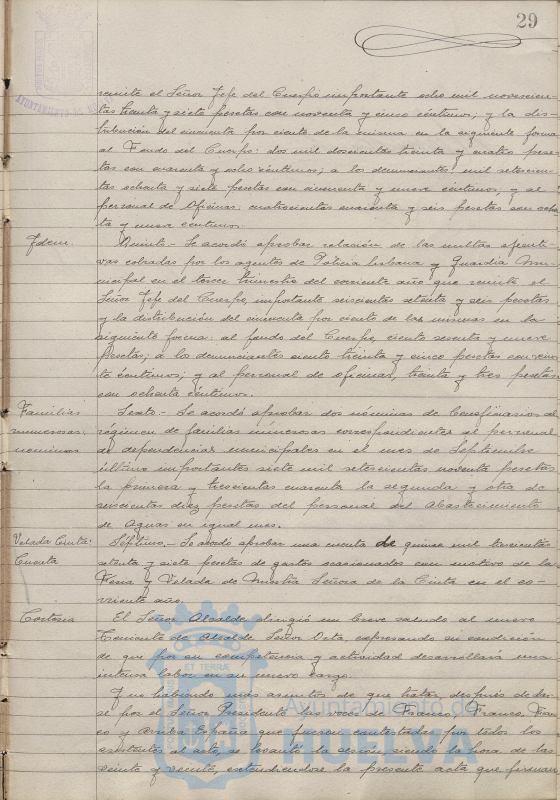 29
remite el Señor Jefe del Cuerpo importante ocho mil novecien-
tas treinta y siete pesetas con noventa y cinco céntimos; y la dis-
tribución del cincuenta por ciento de la misma en la siguiente forma
al Fondo del Cuerpo: dos mil doscientas treinta y cuatro pese-
tas con cuarenta y ocho céntimos; a los denunciantes mil setecien-
tas ochenta y siete pesetas con cincuenta y nueve céntimos; y al
personal de Oficinas cuatrocientas cuarenta y seis pesetas con ochen-
ta y nueve céntimos.
Idem. Quinto.- Se acordó aprobar relación de las multas efecti-
vas cobradas por los agentes de Policía Urbana y Guardia Mu-
nicipal en el tercer trimestre del corriente año que remite el
Señor Jefe del Cuerpo, importante seiscientas setenta y seis pesetas
y la distribución del cincuenta por ciento de las mismas en la
siguiente forma: al fondo del Cuerpo, ciento sesenta y nueve
pesetas; a los denunciantes ciento treinta y cinco pesetas con vein-
te céntimos; y al personal de oficinas, treinta y tres pesetas
con ochenta céntimos.
Familias Sexto.- Se acordó aprobar dos nóminas de beneficiarios del
numerosas. régimen de familias numerosas correspondientes al personal
nominas de dependencias municipales en el mes de Septiembre
último importantes siete mil setecientas noventa pesetas
la primera y trescientas cuarenta la segunda y otra de
seiscientas diez pesetas del personal del Abastecimiento
de Aguas en igual mes.
Velada Cinta: Séptimo.- Se acordó aprobar una cuenta de quince mil trescientas
Cuenta setenta y siete pesetas de gastos ocasionados con motivo de la
Feria y Velada de Nuestra Señora de la Cinta en el co-
rriente año.
Cortesia El Señor Alcalde dirigió un breve saludo al nuevo
Teniente de Alcalde Señor Oeta, expresando su condición
de que por su competencia y actividad desarrollará una
intensa labor en su nuevo cargo.
Y no habiendo más asuntos de que tratar, después de dar-
se por el Señor Presidente las voces de Franco, Franco, Fran-
co y Arriba España que fueron contestadas por todos los
asistentes al acto, se levantó la sesión siendo la hora de las
veinte y veinte, extendiéndose la presente acta que firman
ET TERRAE
Ayuntamiento de
HUELVA